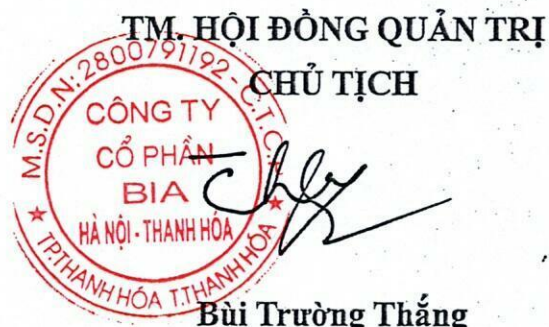 TM. HỘI ĐỒNG QUẢN TRỊ
CHỦ TỊCH
M.S.D.N: 2800791192 - C.T.C.P
CÔNG TY
CỔ PHẦN
BIA
HÀ NỘI - THANH HÓA
TP.THANH HÓA T.THANH HÓA
Bùi Trường Thắng